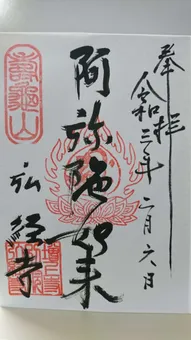 奉拝
令和三年二月六日
阿弥陀如来
壽亀山
弘経寺